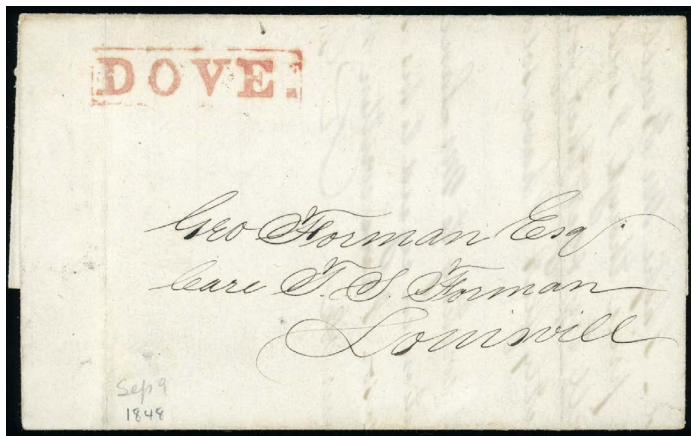 DOVE.
Geo Forman Esq.
Care T. S. Forman
Louisvill
Sep 9
1848